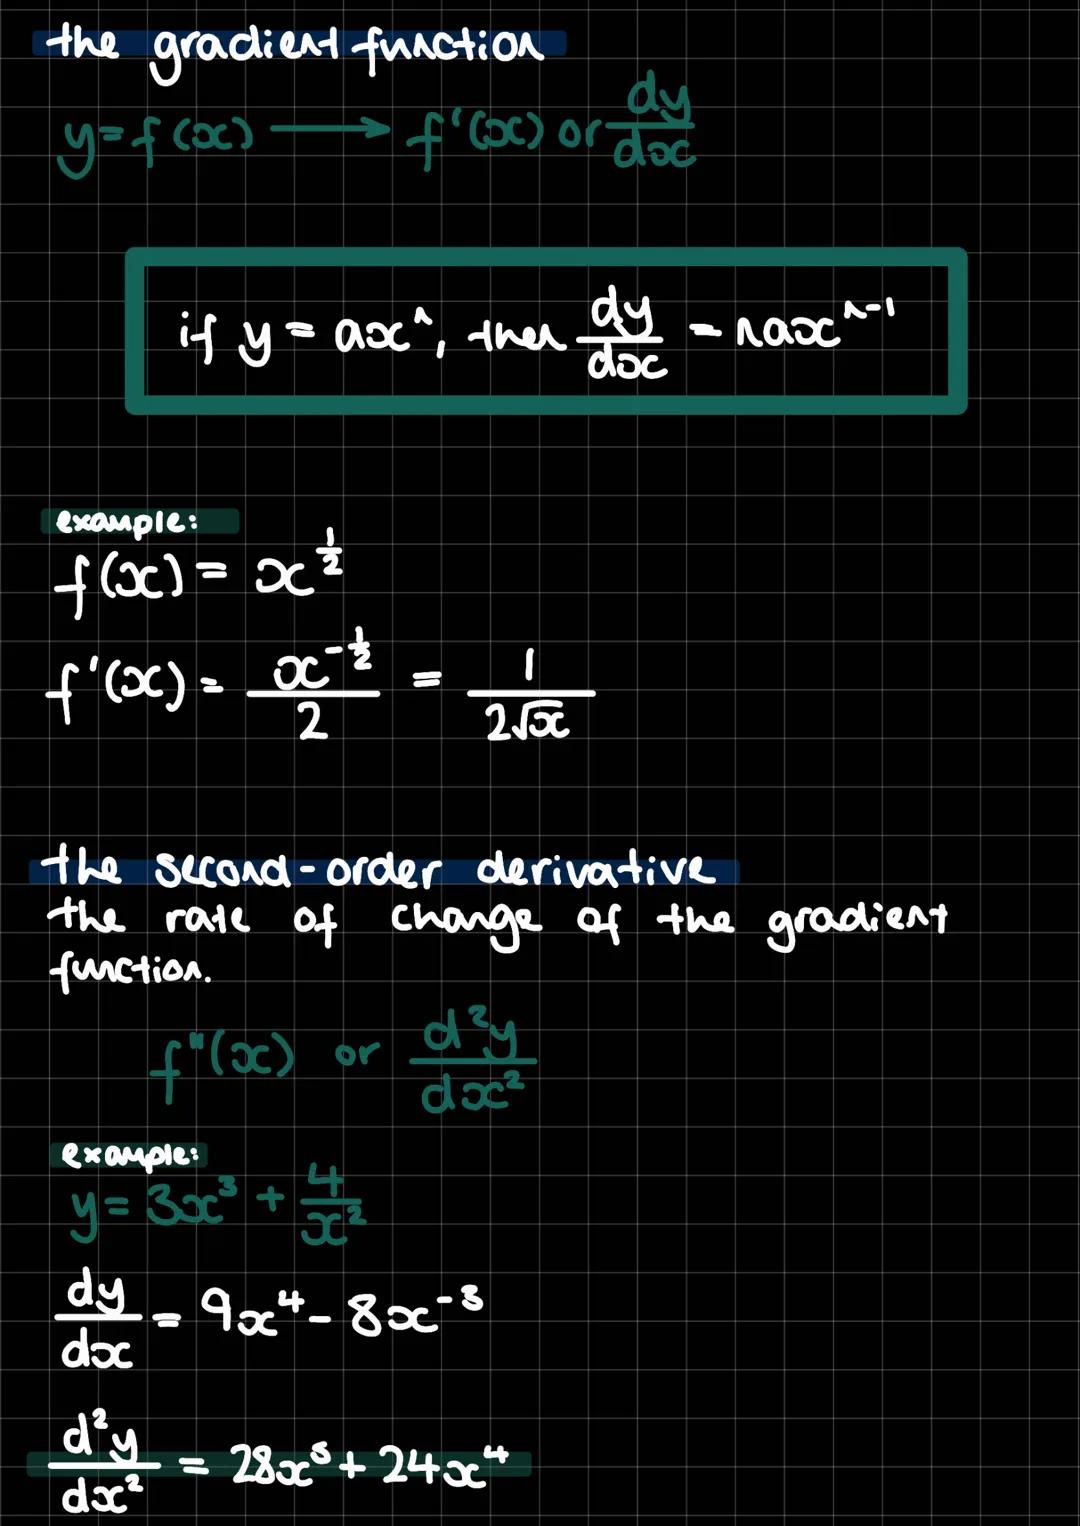 the gradient function
y = f(x) ⟶ f'(x) or dy/dx
if y = axⁿ, then dy/dx = naxⁿ⁻¹
example:
f(x) = x^(1/2)
f'(x) = x^(-1/2)/2 = 1/(2√x)
the second-order derivative
the rate of change of the gradient
function.
f"(x) or d²y/dx²
example:
y = 3x³ + 4/x²
dy/dx = 9x⁴ - 8x⁻³
d²y/dx² = 28x⁵ + 24x⁴